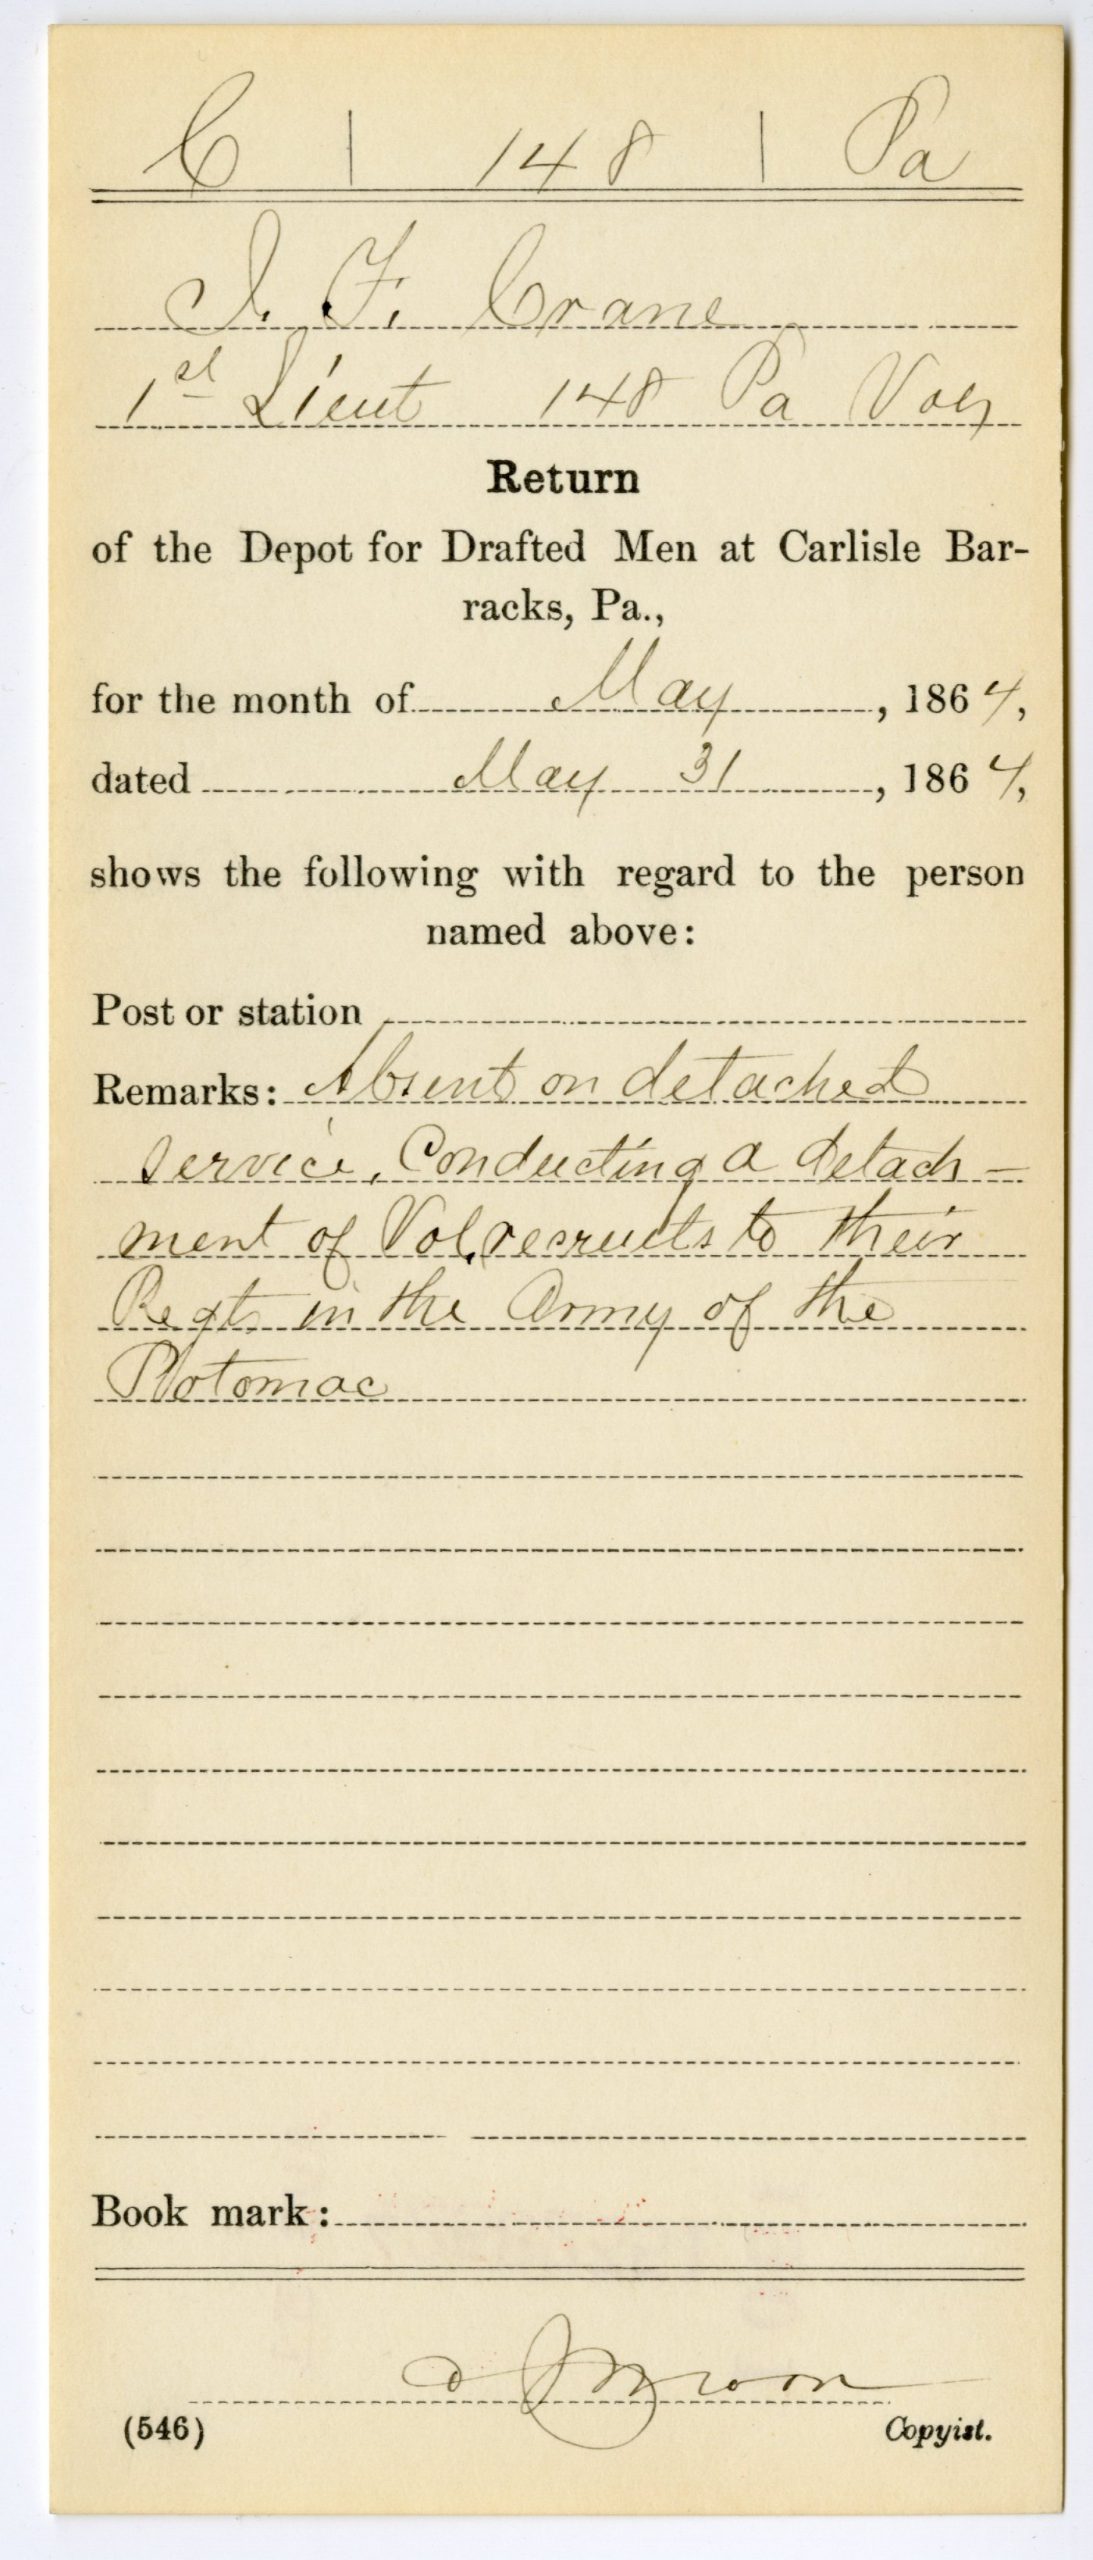 C | 148 | Pa
J. F. Crane
1st Lieut 148 Pa Vols
Return
of the Depot for Drafted Men at Carlisle Bar-
racks, Pa.,
for the month of May, 1864,
dated May 31, 1864,
shows the following with regard to the person
named above:
Post or station
Remarks: Absent on detached
service, Conducting a detach-
ment of Vol. recruits to their
Regts in the Army of the
Potomac
Book mark:
(546) Copyist.